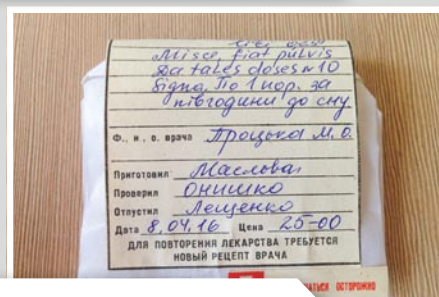 Misce, fiat pulvis
Da tales doses N 10
Signa. По 1 пор. за
півгодини до сну
Ф., и., о. врача Процька М. О.
Приготовил Маслова
Проверил Онишко
Отпустил Лещенко
Дата 8,04.16 Цена 25-00
ДЛЯ ПОВТОРЕНИЯ ЛЕКАРСТВА ТРЕБУЕТСЯ
НОВЫЙ РЕЦЕПТ ВРАЧА
ОСТОРОЖНО